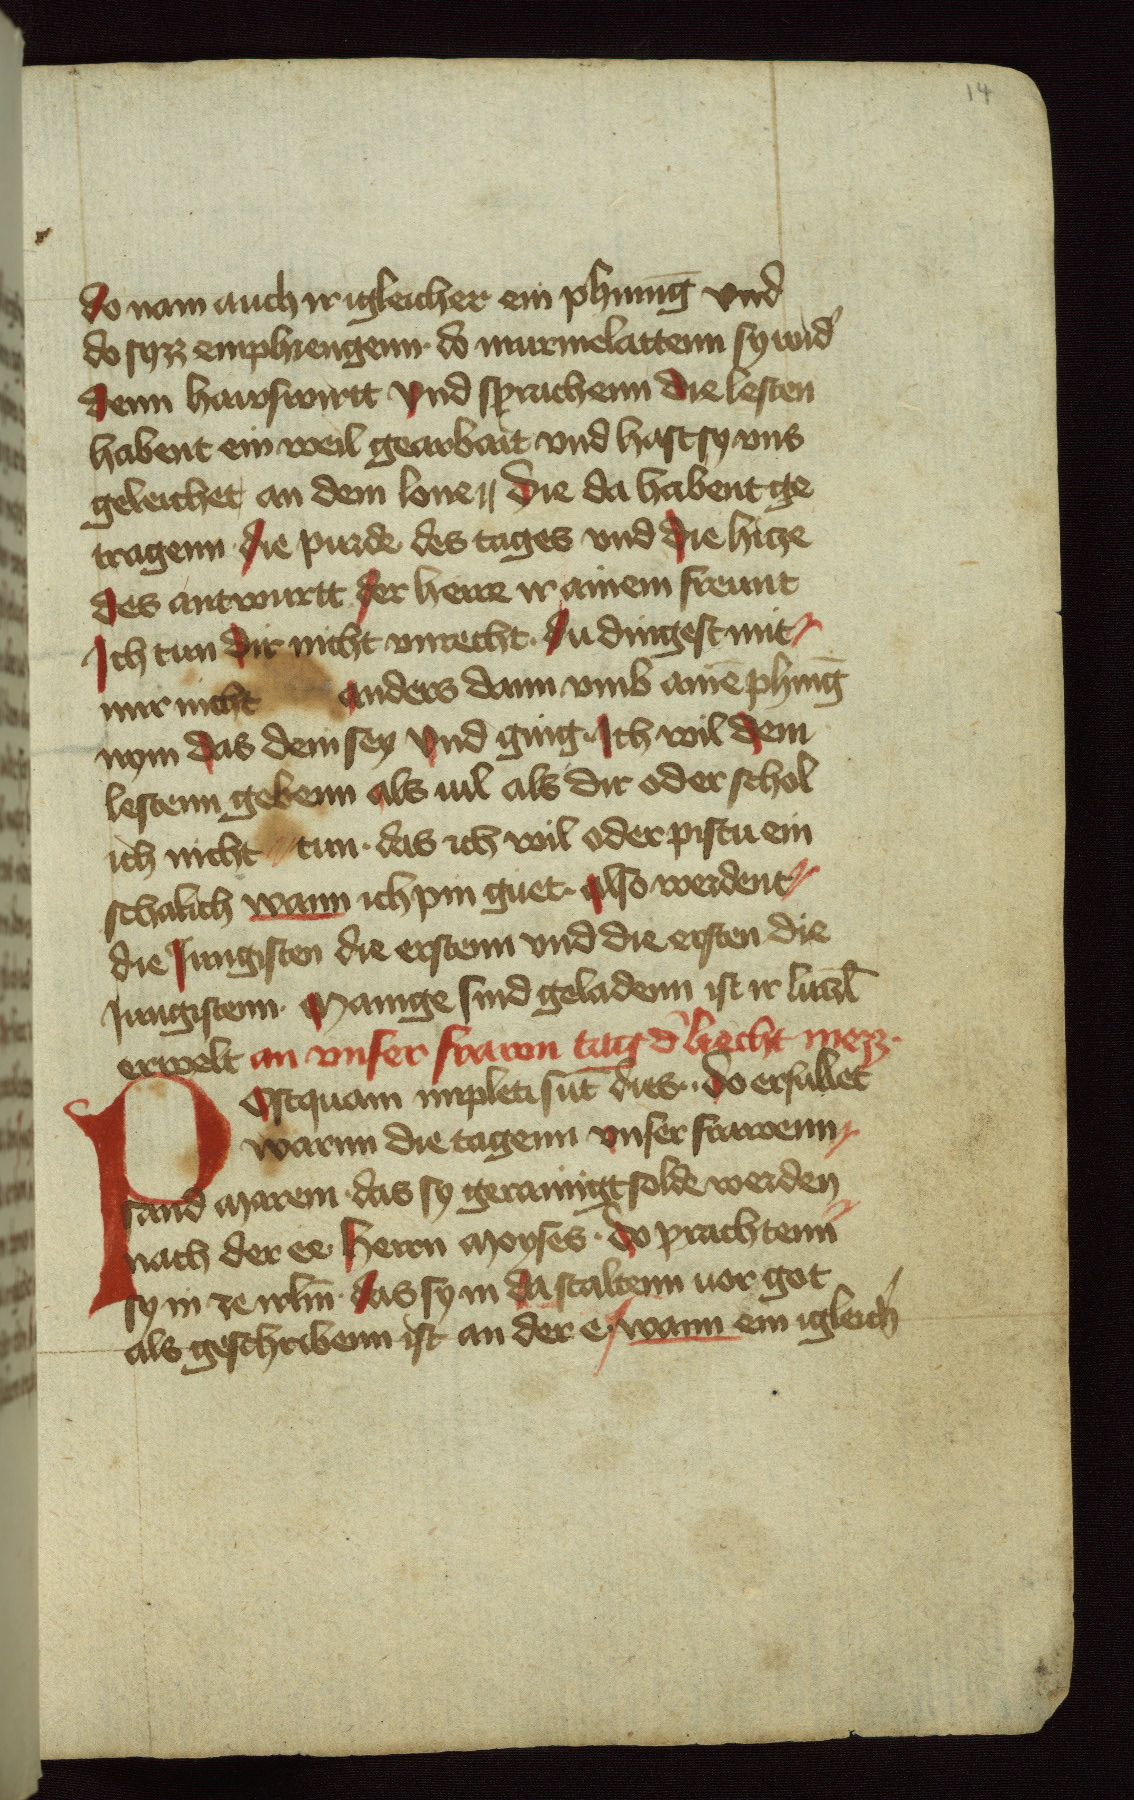 14
do nam auch ir igleicher ein phīnnīg vnd
do syzz emphiengenn · do murmelattenn sy wid̾
denn hawswirtt vnd sprachenn die lesten
habent ein weil gearbait vnd hast sy vns
geleichet an dem lone 〃 die da habent ge
tragenn die purde des tages vnd die hitze
des antwurtt der herre ir ainem freunt
Ich tun dir nicht vnrecht · du dingest mit
mir nicht anders dann vmb ainē phīng̅
nym das dein sey vnd ging · Ich wil dem
lestenn gebenn als uil als dir oder schol
ich nicht tun · das ich wil oder pistu ein
schalich wann ich pin guet · also werdent
die Jungisten die erstenn vnd die ersten die
Jungistenn · Mainge sind geladenn ist ir lutzl̅
erwelt an vnser frawn tag d̾ liecht mezz ·
Postquam impleti sūt dies · do erfullet
warnn die tagenn vnser frawenn
sand marein · das sy gerainigt solde werden
nach der ee · herrn moyses · do prachtenn
sy in ze irlm̅ · das sy in da staltenn uor got
als geschribenn ist an der e · wann ein igleich̾